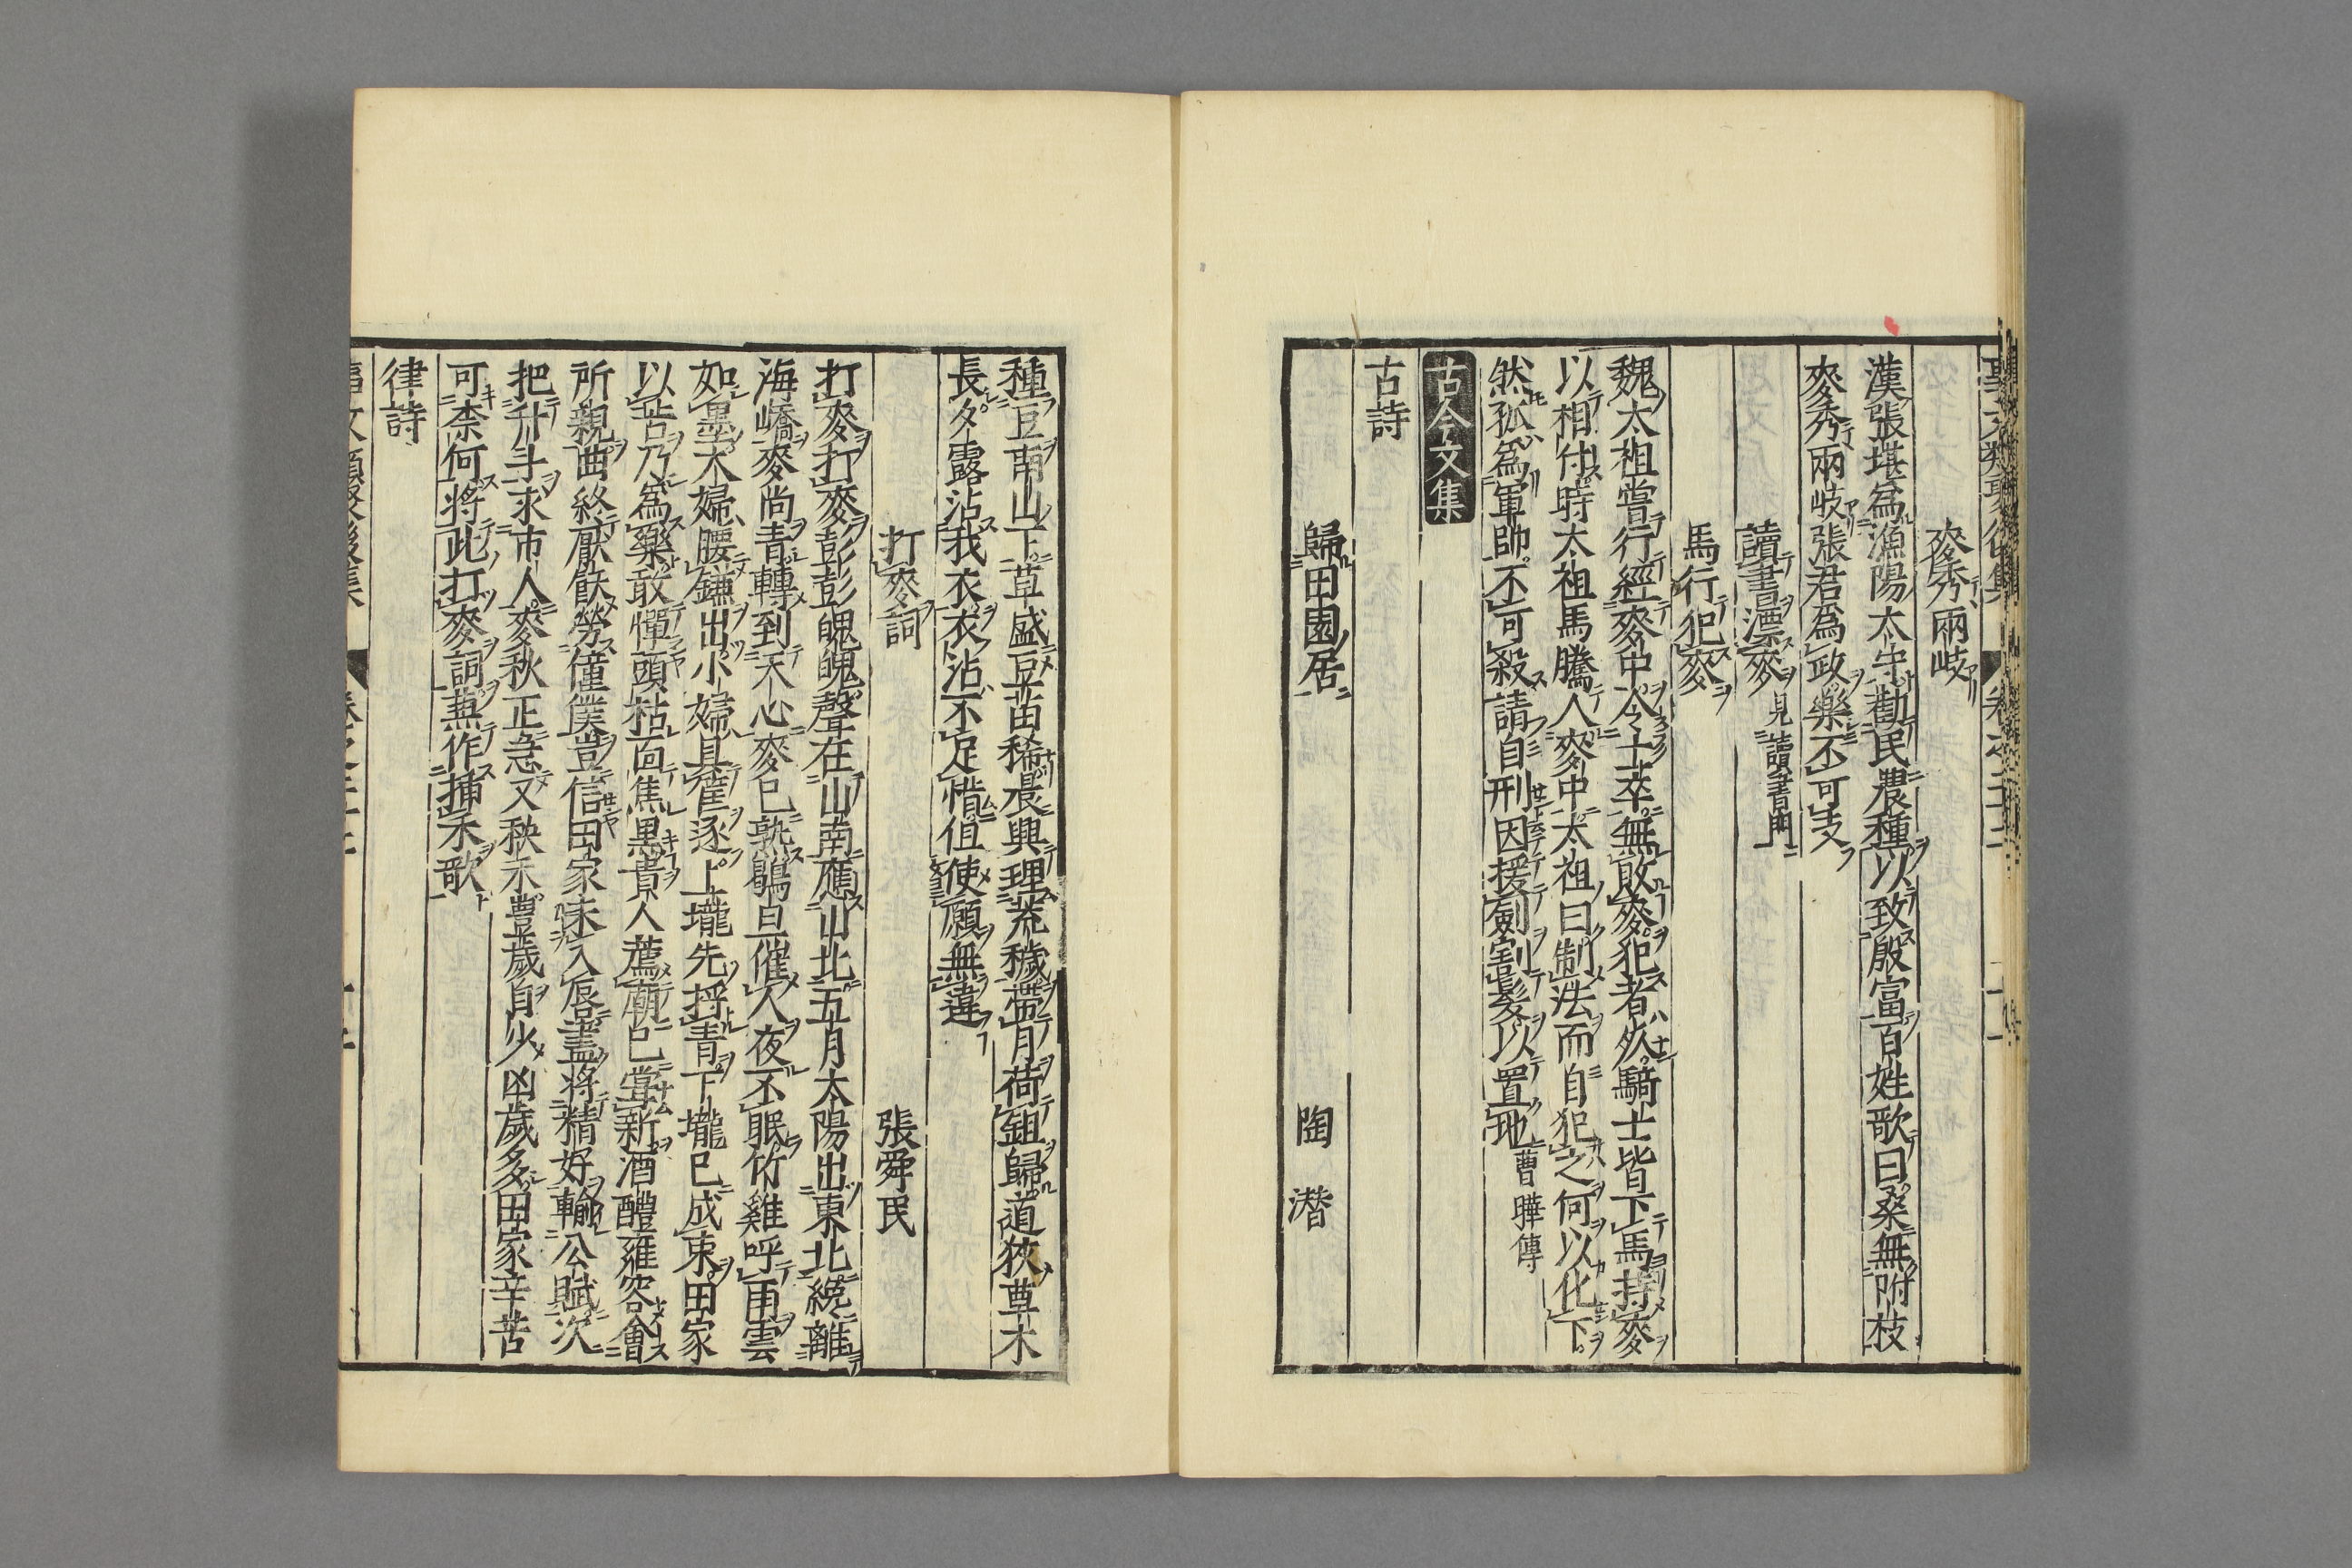 麥秀兩岐
漢張堪爲漁陽太守勸民農種以致殷富百姓歌曰桑無附枝
麥秀兩岐張君爲政樂不可支
讀書漂麥見讀書門
馬行犯麥
魏太祖嘗行經麥中令士卒無敗麥犯者死騎士皆下馬持麥
以相付時太祖馬騰入麥中太祖曰制法而自犯之何以化下
然孤爲軍帥不可殺請自刑因援劍割髮以置地曹瞞傳
古今文集
古詩
歸田園居 陶潛
種豆南山下草盛豆苗稀晨興理荒穢帶月荷鉏歸道狹草木
長夕露沾我衣衣沾不足惜但使願無違
打麥詞 張舜民
打麥打麥彭彭魄魄聲在山南應山北五月太陽出東北纔離
海嶠麥尚青轉到天心麥已熟鶡旦催人夜不眠竹雞呼雨雲
如墨大婦腰鎌出小婦具筐逐上壠先捋青下壠已成束田家
以苦乃爲樂敢憚頭枯面焦黑貴人薦廟已嘗新酒醴雍容會
所親曲終厭飫勞僮僕豈信田家未入唇盡將精好輸公賦次
把升斗求市人麥秋正急又秧禾豐歲自少凶歲多田家辛苦
可柰何將此打麥詞兼作插禾歌
律詩